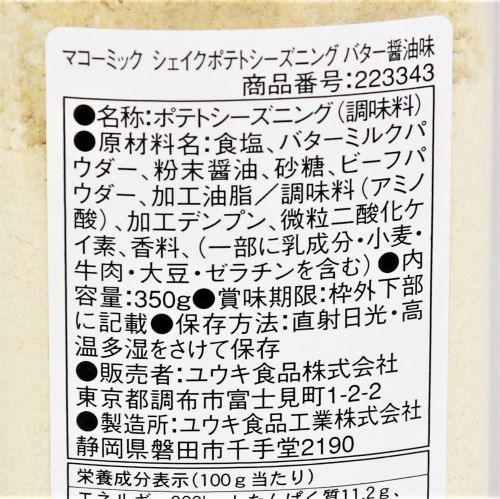 マコーミック シェイクポテトシーズニング バター醤油味
商品番号:223343
●名称:ポテトシーズニング(調味料)
●原材料名:食塩、バターミルクパ
ウダー、粉末醤油、砂糖、ビーフパ
ウダー、加工油脂/調味料(アミノ
酸)、加工デンプン、微粒二酸化ケ
イ素、香料、(一部に乳成分・小麦・
牛肉・大豆・ゼラチンを含む)●内
容量:350g●賞味期限:枠外下部
に記載●保存方法:直射日光・高
温多湿をさけて保存
●販売者:ユウキ食品株式会社
東京都調布市富士見町1-2-2
●製造所:ユウキ食品工業株式会社
静岡県磐田市千手堂2190
栄養成分表示(100g当たり)
エネルギー たんぱく質11.2g、